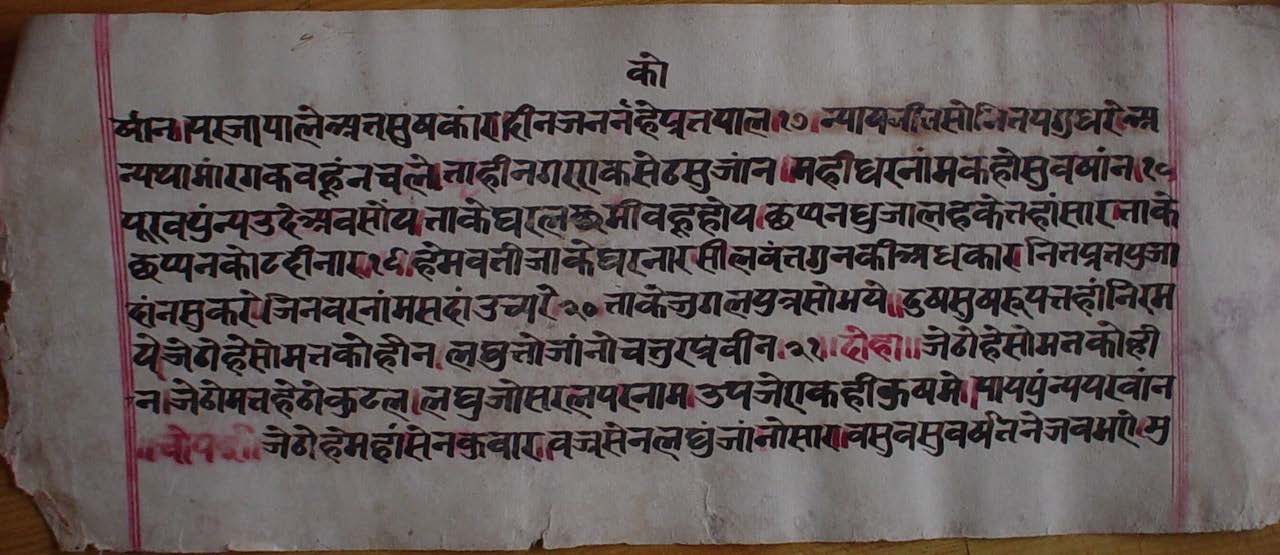 को
षांन। परजा पाले अत सुषकांर। दीन जन नैं हे प्रतपाल। १७ न्याय नीत सो नित पग धरे अ
न्यया मांरग कबहूं न चले। ताही नगर एक सेठ सुजांन ॥ महीधर नांम कहो सुवषांन १८
पूरव पुंन्य उदे अब सोय। ताके घर लछमी बहू होय। छप्पन धुजा लहके तहां सार। ताके
छप्पन कोट दीनार। १९। हेमवती जाके घर नार। सीलवंत गुन की अधकार। नित प्रत पुजा
दांन सु करे। जिनवर नांम सदां उच्चरे २० ताके जुगल पुत्र सो भये ॥ दुष सुष रूप तहां निरम
ये। जेठो हे सो मत को हीन। लघु तो जांनो चतुर प्रवीन। २१ ॥ दोहा ॥ जेठो हे सो मत को ही
न। जेठो मत हे ठो कुटल। लघु जो सरल परनाम। उपजे एक ही कुष मे। पाप पुंन्य परवांन
॥ चोपई ॥ जेठो हे महांसेन कुवार ॥ वज्रसेन लघुं जांनो सार। वसु वसु वर्ष तने जब भऐ। मु